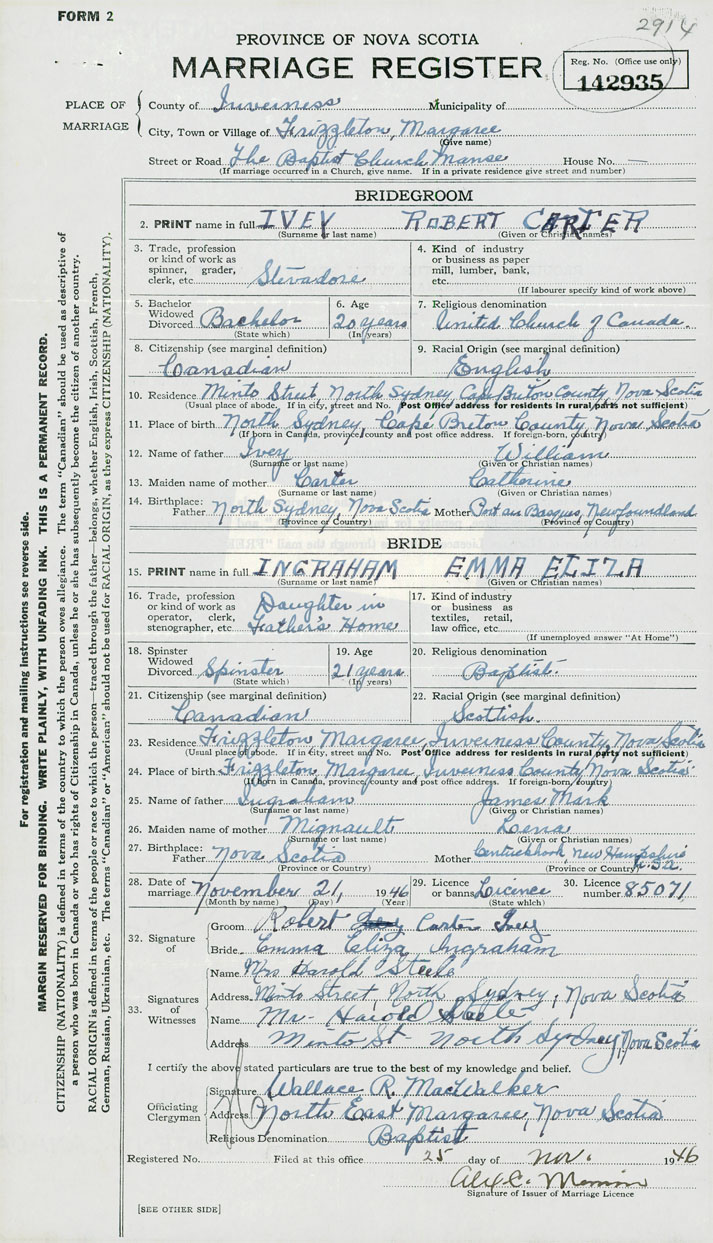 FORM 2
2914
PROVINCE OF NOVA SCOTIA
MARRIAGE REGISTER
Reg. No. (Office use only)
142935
PLACE OF MARRIAGE
County of Inverness Municipality of
City, Town or Village of Frizzleton, Margaree
(Give name)
Street or Road The Baptist Church Manse House No. —
(If marriage occurred in a Church, give name. If in a private residence give street and number)
BRIDEGROOM
2. PRINT name in full IVEY ROBERT CARTER
(Surname or last name) (Given or Christian names)
3. Trade, profession or kind of work as spinner, grader, clerk, etc. Stevadore
4. Kind of industry or business as paper mill, lumber, bank, etc.
(If labourer specify kind of work above)
5. Bachelor Widowed Divorced Bachelor
(State which)
6. Age 20 years
(In years)
7. Religious denomination
United Church of Canada.
8. Citizenship (see marginal definition)
Canadian
9. Racial Origin (see marginal definition)
English
10. Residence Minto Street, North Sydney, Cape Breton County, Nova Scotia
(Usual place of abode. If in city, street and No. Post Office address for residents in rural parts not sufficient)
11. Place of birth North Sydney, Cape Breton County, Nova Scotia
(If born in Canada, province, county and post office address. If foreign-born, country)
12. Name of father Ivey William
(Surname or last name) (Given or Christian names)
13. Maiden name of mother Carter Catherine
(Surname or last name) (Given or Christian names)
14. Birthplace: Father North Sydney, Nova Scotia Mother Port aux Basques, Newfoundland
(Province or Country) (Province or Country)
BRIDE
15. PRINT name in full INGRAHAM EMMA ELIZA
(Surname or last name) (Given or Christian names)
16. Trade, profession or kind of work as operator, clerk, stenographer, etc. Daughter in Father's Home
17. Kind of industry or business as textiles, retail, law office, etc.
(If unemployed answer "At Home")
18. Spinster Widowed Divorced Spinster
(State which)
19. Age 21 years
(In years)
20. Religious denomination
Baptist.
21. Citizenship (see marginal definition)
Canadian
22. Racial Origin (see marginal definition)
Scottish.
23. Residence Frizzleton Margaree, Inverness County, Nova Scotia
(Usual place of abode. If in city, street and No. Post Office address for residents in rural parts not sufficient)
24. Place of birth Frizzleton, Margaree, Inverness County Nova Scotia
(If born in Canada, province, county and post office address. If foreign-born, country)
25. Name of father Ingraham James Mark
(Surname or last name) (Given or Christian names)
26. Maiden name of mother Mignault Lena
(Surname or last name) (Given or Christian names)
27. Birthplace: Father Nova Scotia Mother New Hampshire U.S.A.
(Province or Country) (Province or Country)
28. Date of marriage November 21, 1946
(Month by name) (Day) (Year)
29. Licence or banns Licence
(State which)
30. Licence number 85071
32. Signature of
Groom Robert Carter Ivey
Bride Emma Eliza Ingraham
33. Signatures of Witnesses
Name Mrs Harold Steele
Address Minto Street, North Sydney, Nova Scotia
Name Mr- Harold Steele
Address Minto St- North Sydney, Nova Scotia
I certify the above stated particulars are true to the best of my knowledge and belief.
Officiating Clergyman
Signature Wallace R. MacWalker
Address North East Margaree, Nova Scotia
Religious Denomination Baptist
Registered No. Filed at this office 25 day of Nov. 1946
Signature of Issuer of Marriage Licence
[SEE OTHER SIDE]
For registration and mailing instructions see reverse side.
MARGIN RESERVED FOR BINDING. WRITE PLAINLY, WITH UNFADING INK. THIS IS A PERMANENT RECORD.
CITIZENSHIP (NATIONALITY) is defined in terms of the country to which the person owes allegiance. The term "Canadian" should be used as descriptive of
a person who was born in Canada or who has rights of Citizenship in Canada, unless he or she has subsequently become the citizen of another country.
RACIAL ORIGIN is defined in terms of the people or race to which the person—traced through the father—belongs, whether English, Irish, Scottish, French,
German, Russian, Ukrainian, etc. The terms "Canadian" or "American" should not be used for RACIAL ORIGIN, as they express CITIZENSHIP (NATIONALITY).